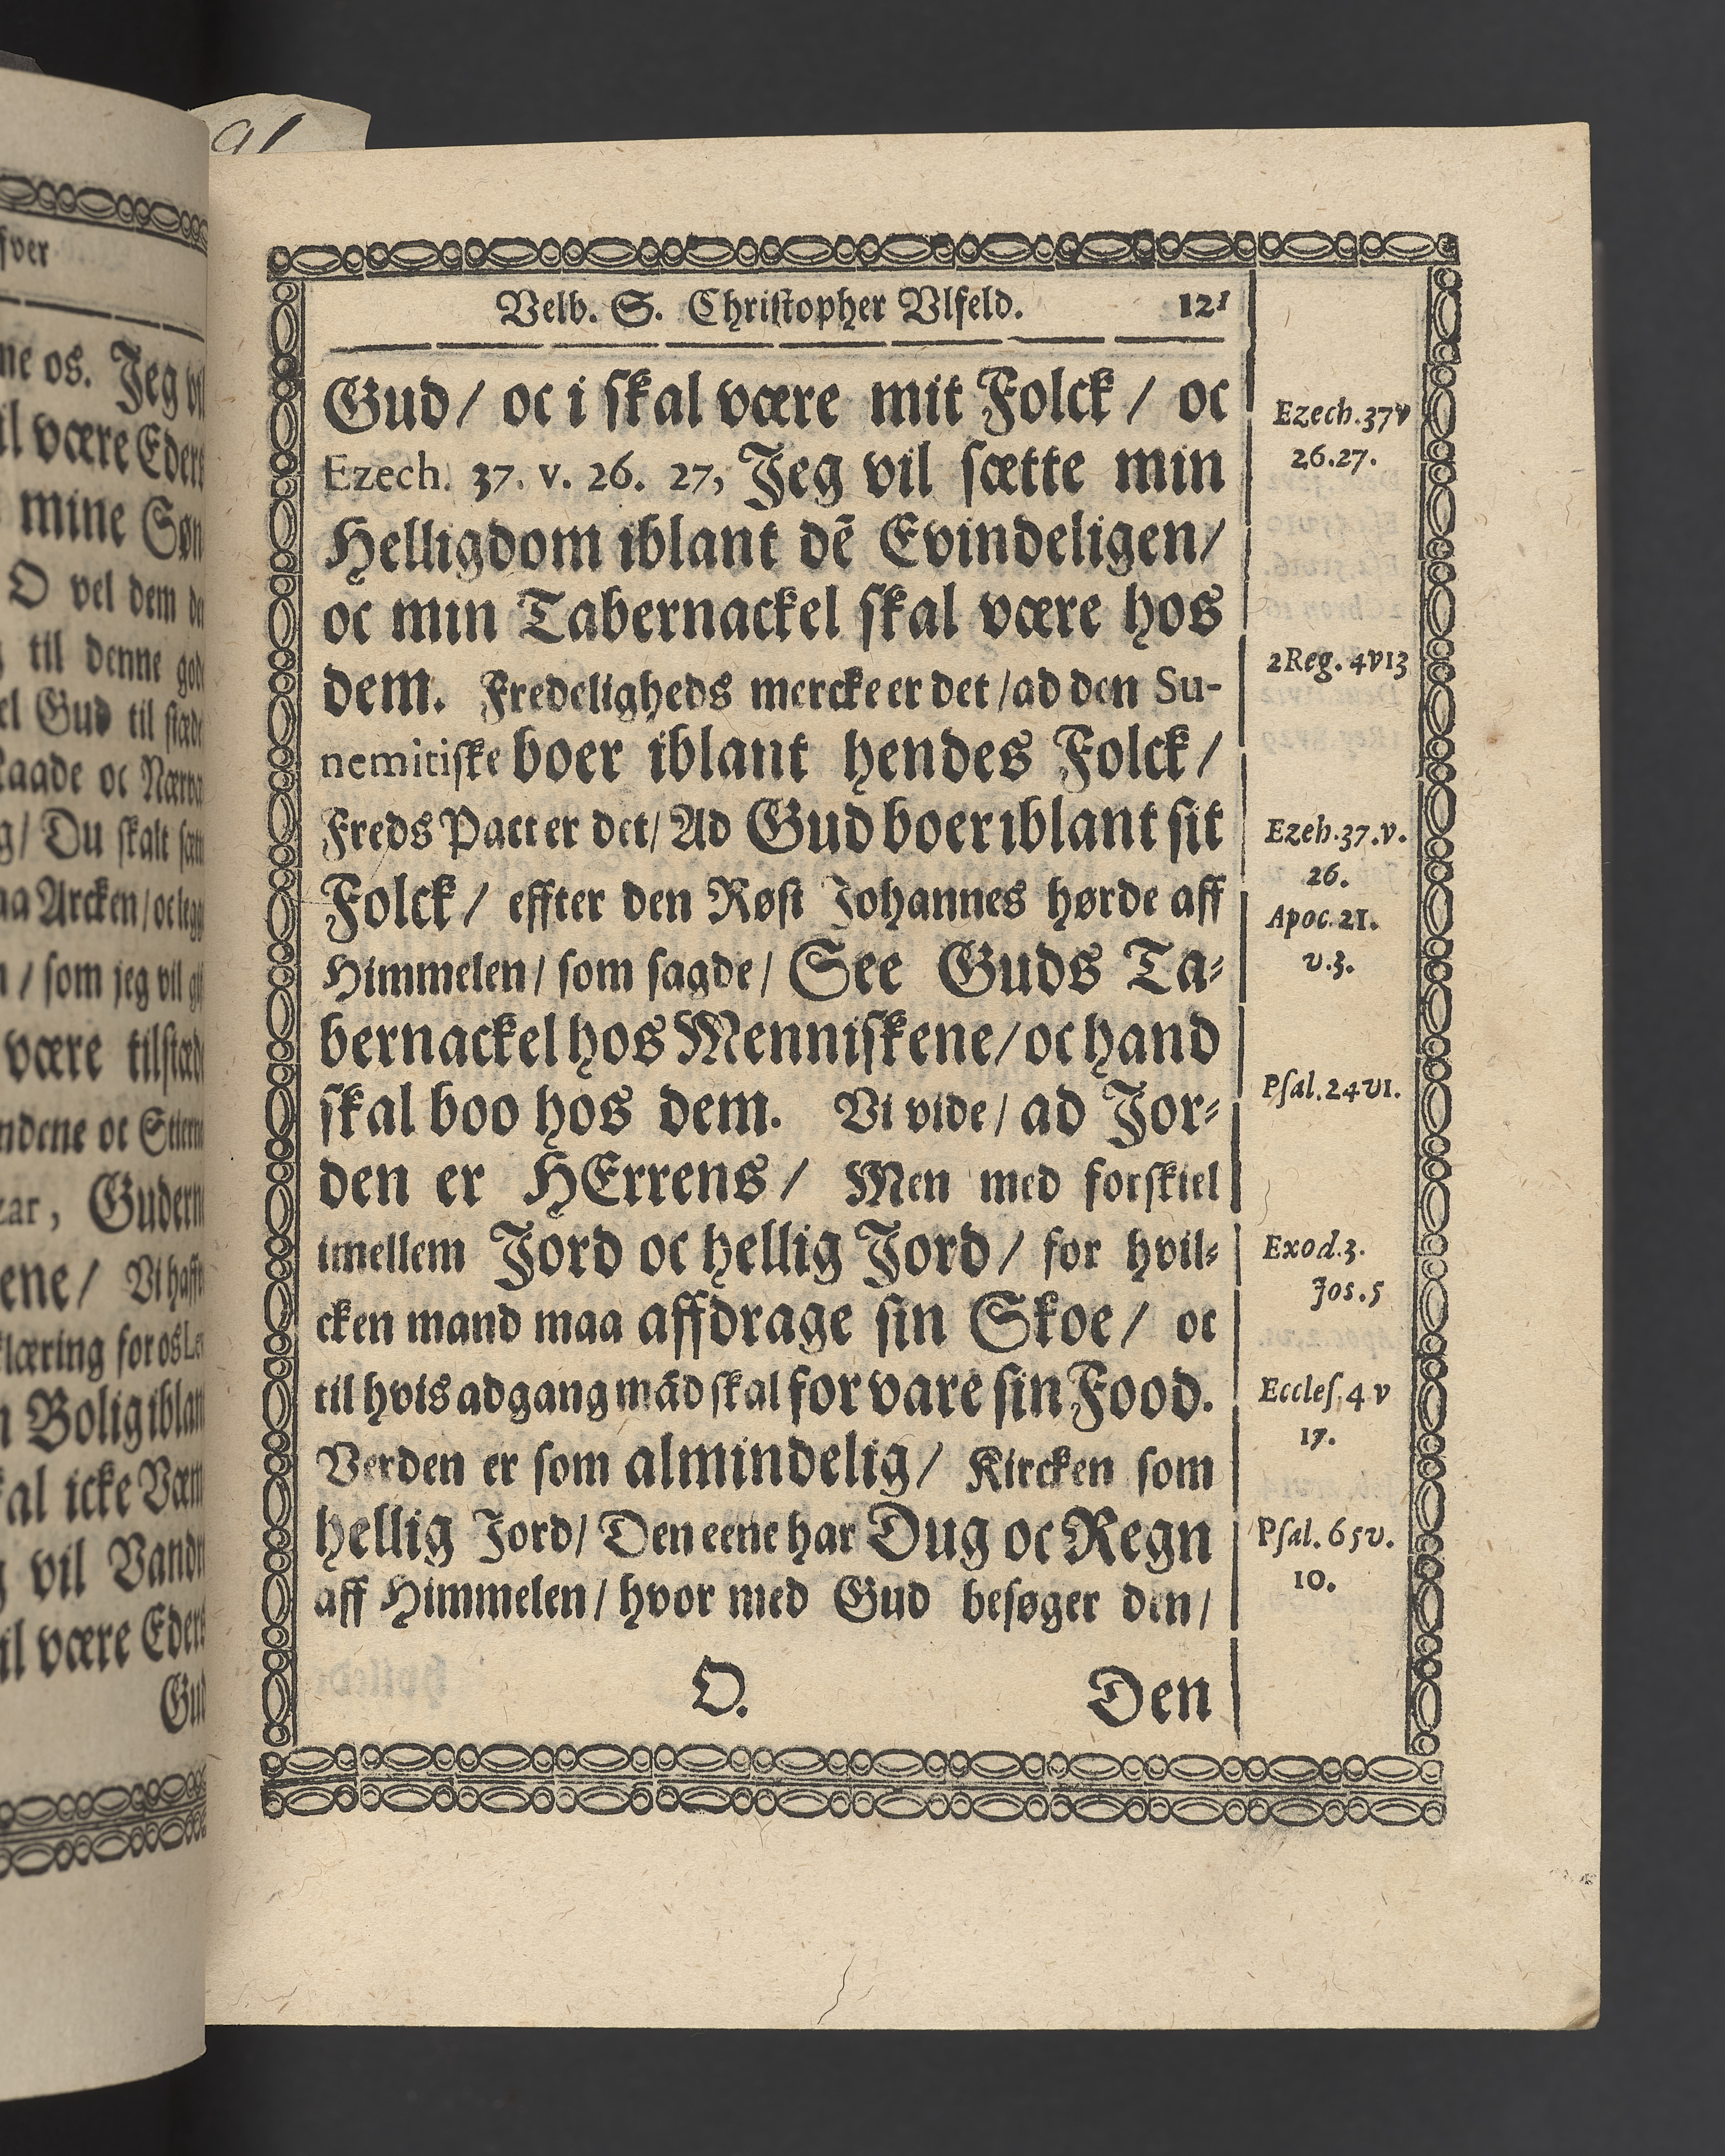 91
fver
ne os. Jeg vil
il være Eders
mine Søn
O vel dem
til denne
el Gud til
Raade oc
g/ Du skalt
aa Arcken/ oc
n/ som jeg vil
være
ndene oc
zar, Gudern
ene/ Vi
klæring for os
n Bolig iblan
kal icke
g vil Vandr
il være Eders
Gud
Velb. S. Christopher Vlfeld. 121
Gud/ oc i skal være mit Folck/ oc
Ezech. 37. v. 26. 27, Jeg vil sætte min
Helligdom iblant dē Evindeligen/
oc min Tabernackel skal være hos
dem. Fredeligheds mercke er det/ ad den Su-
nemitiske boer iblant hendes Folck/
Freds Pact er det/ Ad Gud boer iblant sit
Folck/ effter den Røst Johannes hørde aff
Himmelen/ som sagde/ See Guds Ta-
bernackel hos Menniskene/ oc hand
skal boo hos dem. Vi vide/ ad Jor-
den er HErrens/ Men med forskiel
imellem Jord oc hellig Jord/ for hvil-
cken mand maa affdrage sin Skoe/ oc
til hvis adgang mād skal forvare sin Food.
Verden er som almindelig/ Kircken som
hellig Jord/ Den eene har Dug oc Regn
aff Himmelen/ hvor med Gud besøger den/
O. Den
Ezech.37v
26.27.
2Reg. 4v13
Ezeh.37.v.
26.
Apoc.21.
v.3.
Psal.24v1.
Exod.3.
Jos.5
Eccles.4 v
17.
Psal.65v.
10.